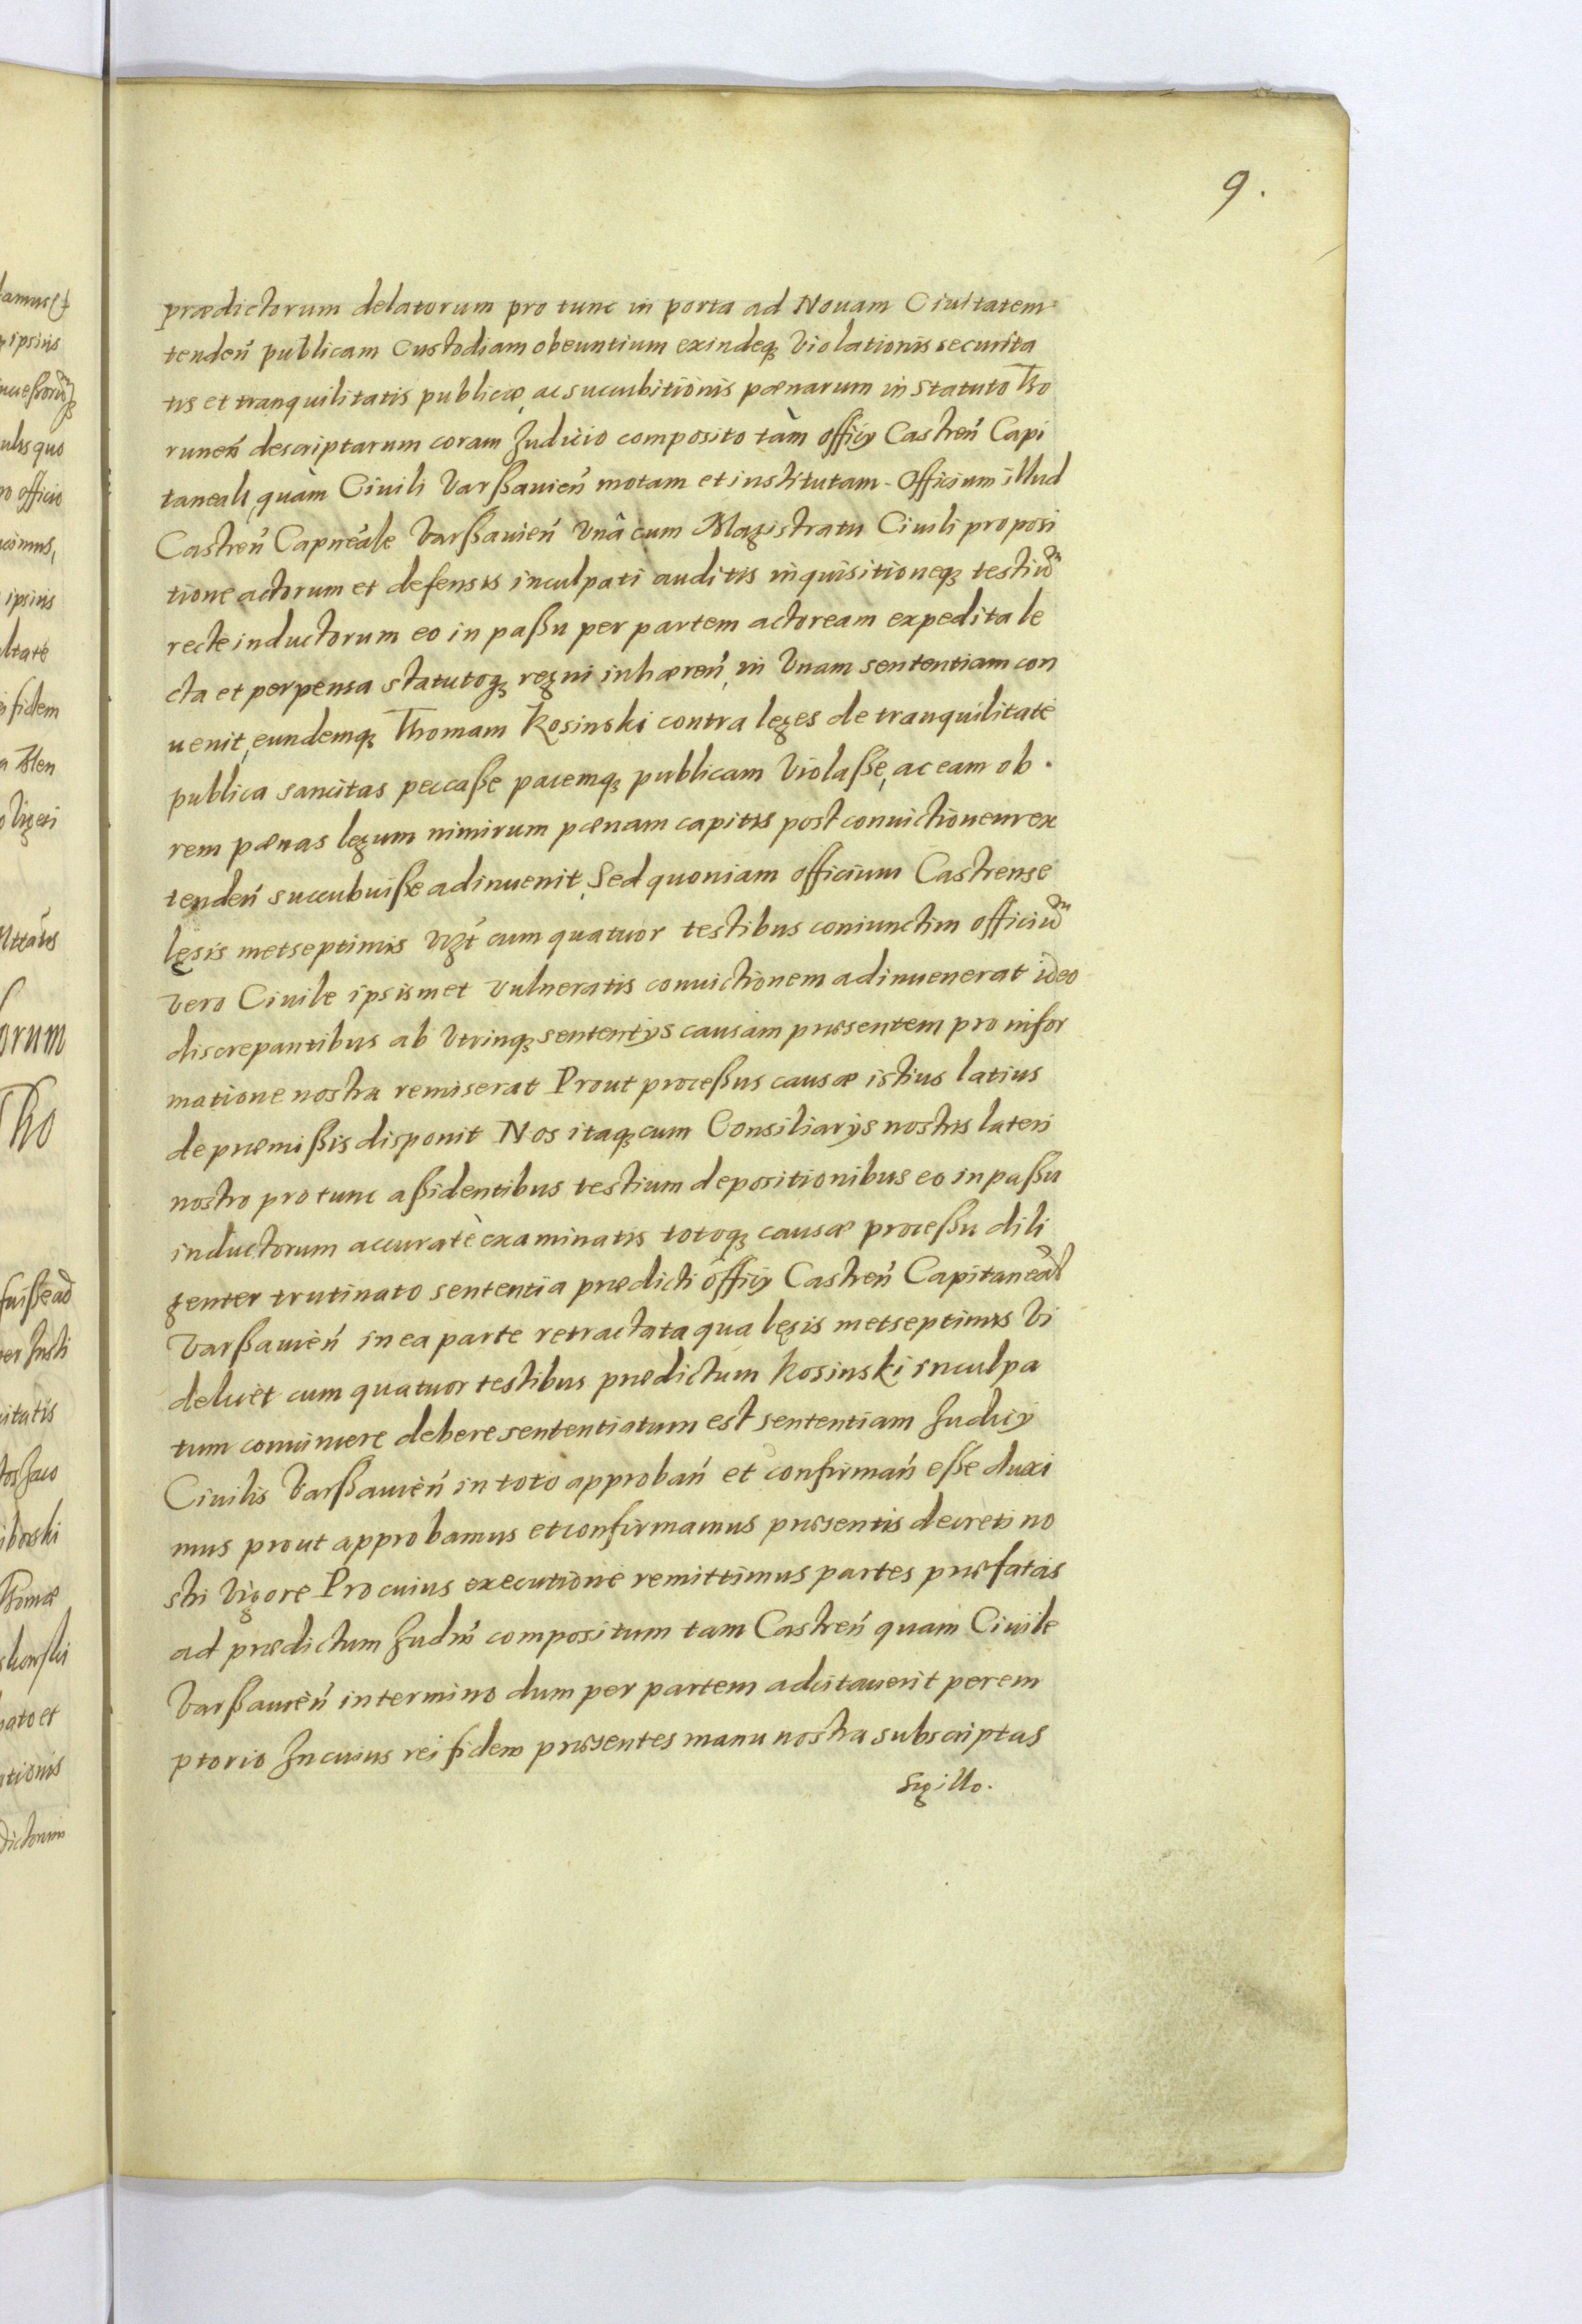 9.
prædictorum delatorum pro tunc in porta ad Nouam Ciuitatem
tendeń publicam Custodiam obeuntium exindeq₃ violationis securita
tis et tranquilitatis publicæ, ac succubitionis pœnarum in statuto Tho
runeń descriptarum coram Judicio composito tàm officÿ Castreń Capi
taneali, quàm Ciuili Varßauień motam et institutam. Officium illud
Castreń Capneale Varßauień Vnâ cum Magistratu Ciuili proposi
tione actorum et defensis inculpati auditis inquisitioneq₃ testiũ
recte inductorum eo in paßu per partem actoream expedita le
cta et perpensa statutoq₃ regni inhæreń, in Vnam sententiam con
uenit, eundemq₃ Thomam Kosinski contra leges de tranquilitate
publica sancitas peccaße pacemq₃ publicam violaße, ac eam ob
rem pœnas legum nimirum pœnam capitis post conuictionem ex
tendeń succubuiße adinuenit, Sed quoniam officium Castrense
lęsis metseptimis Vzt cum quatuor testibus coniunctim officiũ
vero Ciuile ipsismet vulneratis conuictionem adinuenerat ideo
discrepantibus ab Vtrinq₃ sententÿs causam præsentem pro infor
matione nostra remiserat Prout proceßus causæ istius latius
de præmißis disponit Nos itaq₃ cum Consiliarÿs nostris lateri
nostro pro tunc aßidentibus testium depositionibus eo in paßu
inductorum accuratè examinatis totoq₃ causæ proceßu dili
genter trutinato sententia prædicti officÿ Castreń Capitaneal
Varßauień in ea parte retractata qua lęsis metseptimis Vi
delicet cum quatuor testibus prædictum Kosinski inculpa
tum conuincere debere sententiatum est sententiam Judicÿ
Ciuilis Varßauień in toto approbań et confirmań eße duxi
mus prout approbamus et confirmamus præsentis decreti no
stri vigore Pro cuius executione remittimus partes præfatas
ad prædictum Judm compositum tam Castreń quam Ciuile
Varßauień in termino dum per partem adcitauerit perem
ptorio In cuius rei fidem præsentes manu nostra subscriptas
sigillo.